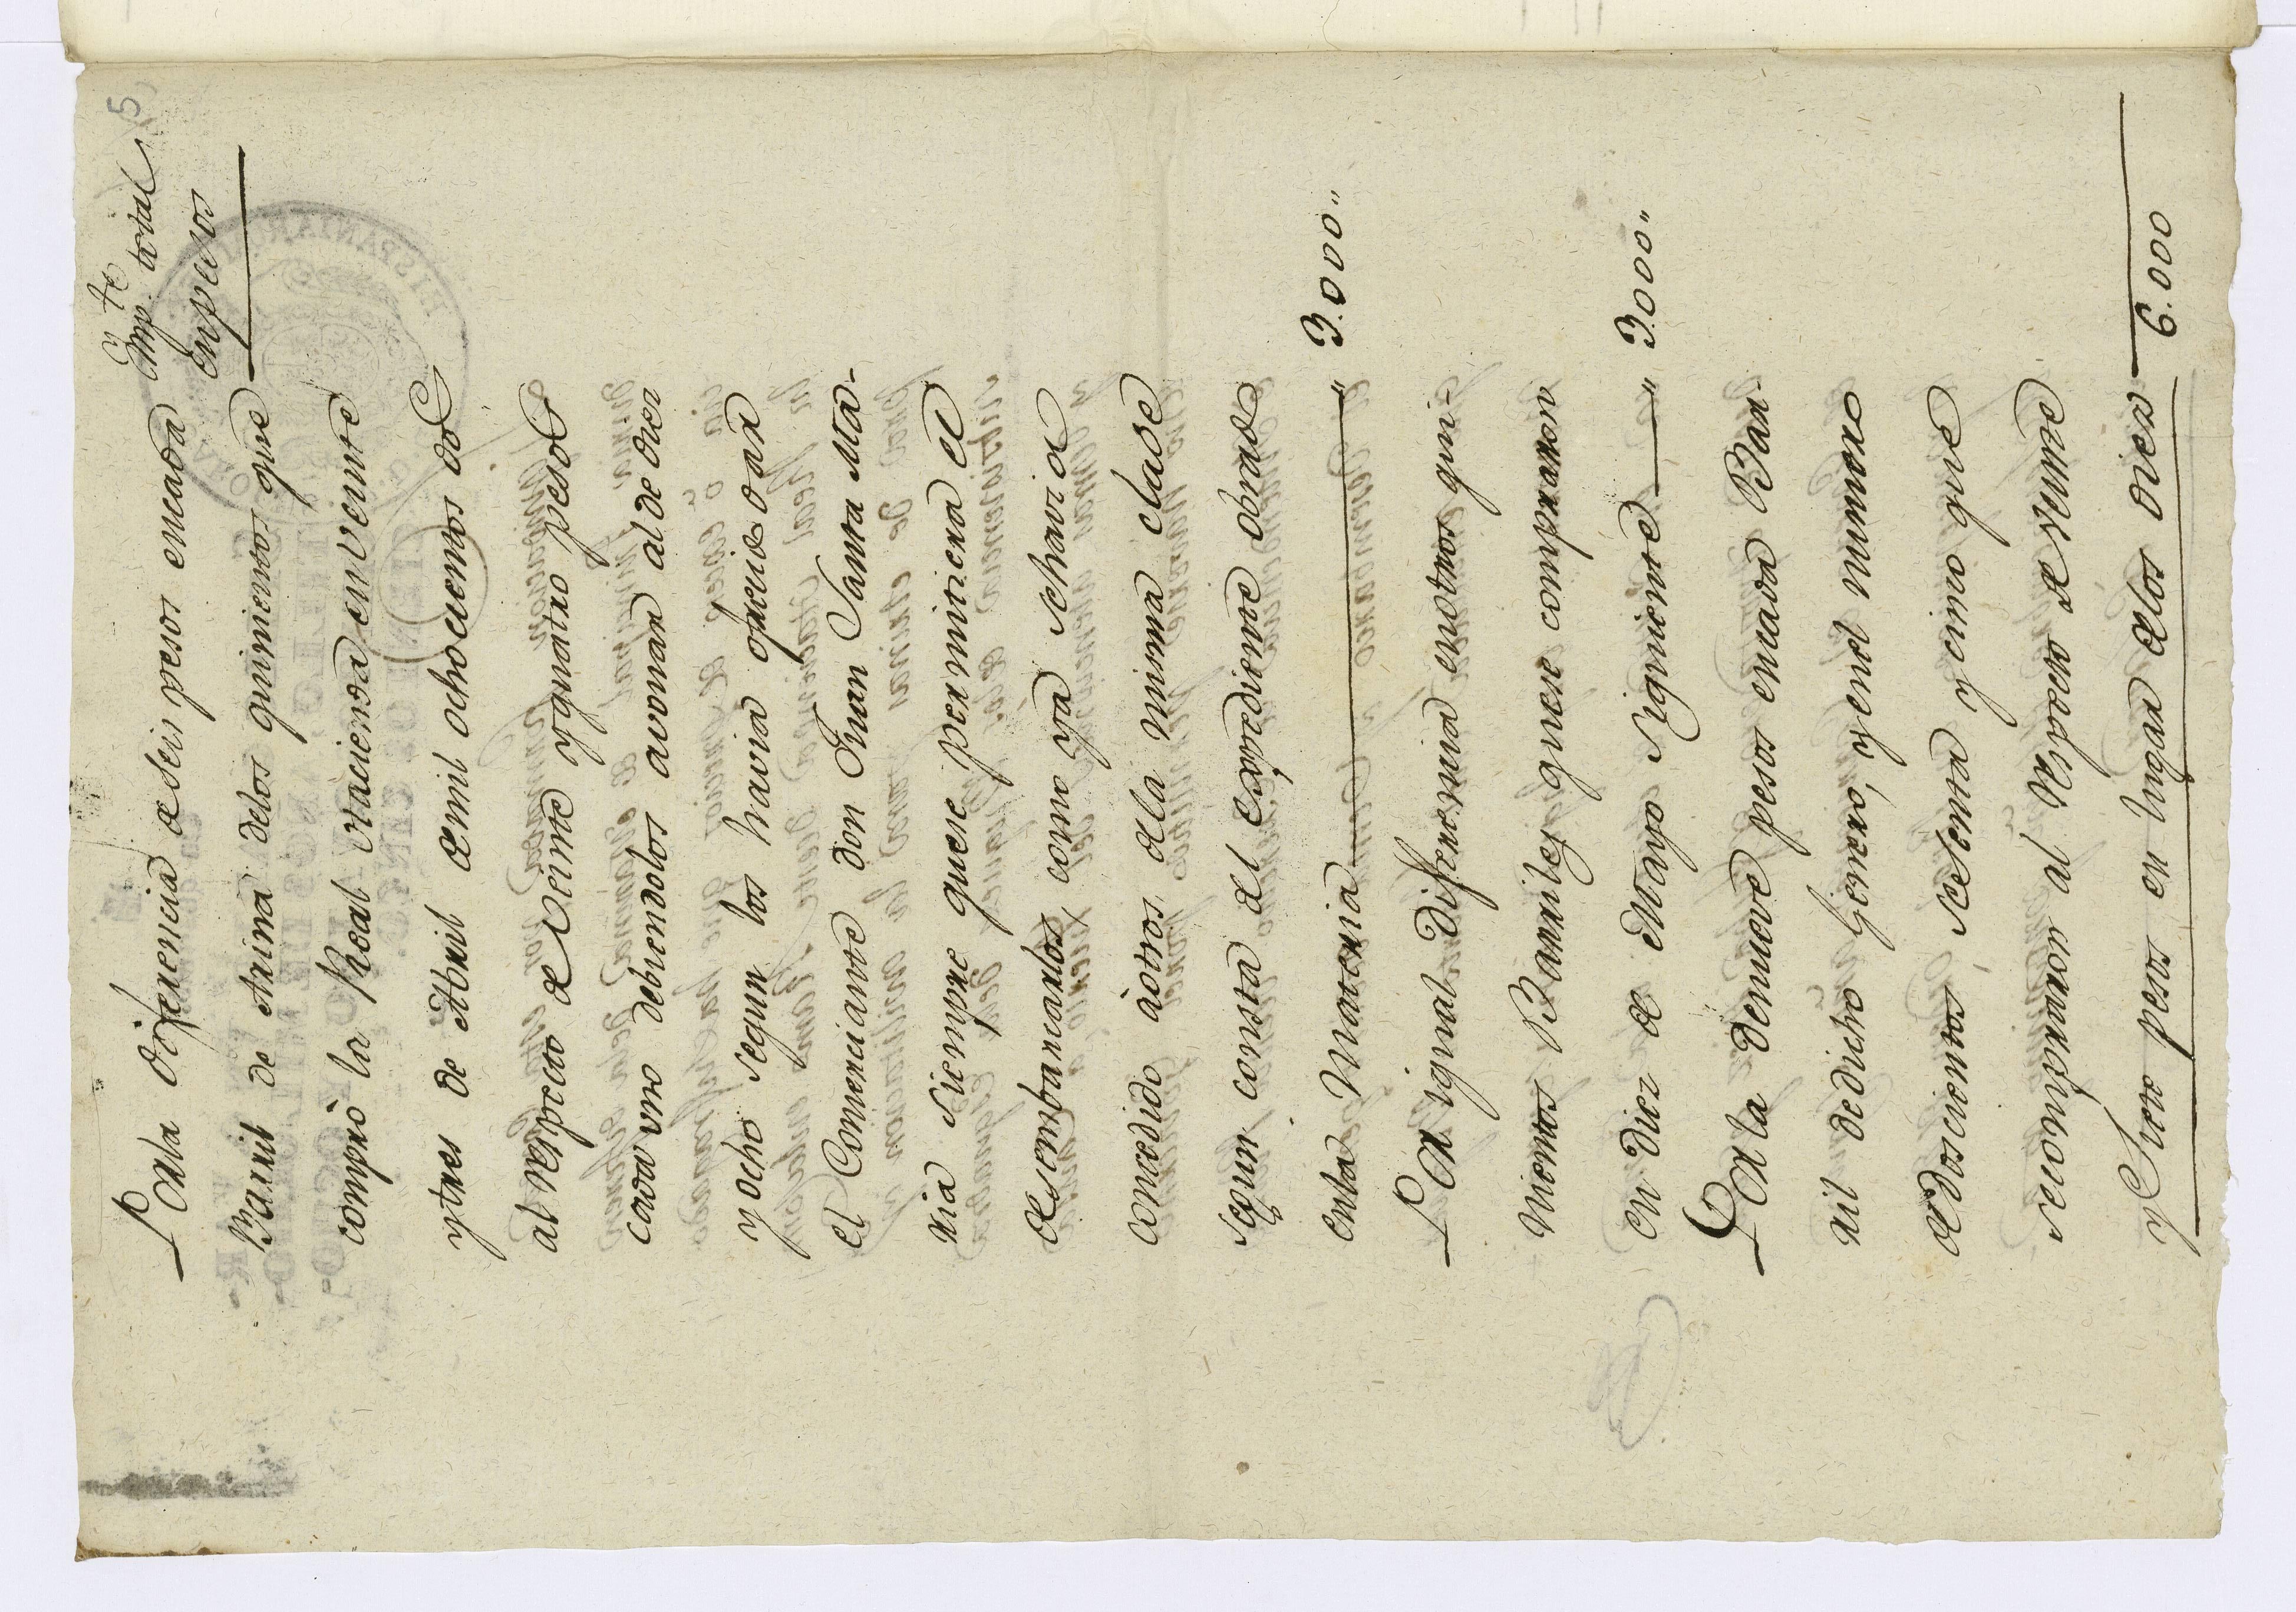 5
Imp.te total
en pesos
Por la diferencia de seis pesos en cada
Barril de Arina delos quinientos que
compró la Real Hacienda en veinte
y tres de Abril de mil ochocientos dos
al respecto de veinte y quatro pesos
cada uno debiendolos avonar al de diez
y ocho segun los havia ofrecido dar
el Comerciante don Juan Santa Ma-
ria siempre que se permitiera el
desembarcarlos, como ya se havia
concedido àotros dela misma clase
segun consta del expediente obrado
enla materia " 3.000"
Por igual diferencia en otros qui-
nientos Barriles que se compraron
en diez de Mayo siguiente " 3.000"
Por la de nueve pesos en cada Bar-
ril de dicho genero, y en el numero
de doscientos sesenta y cinco que
se compraron al respecto de veinte
y siete pesos en lugar delos diez 6.000